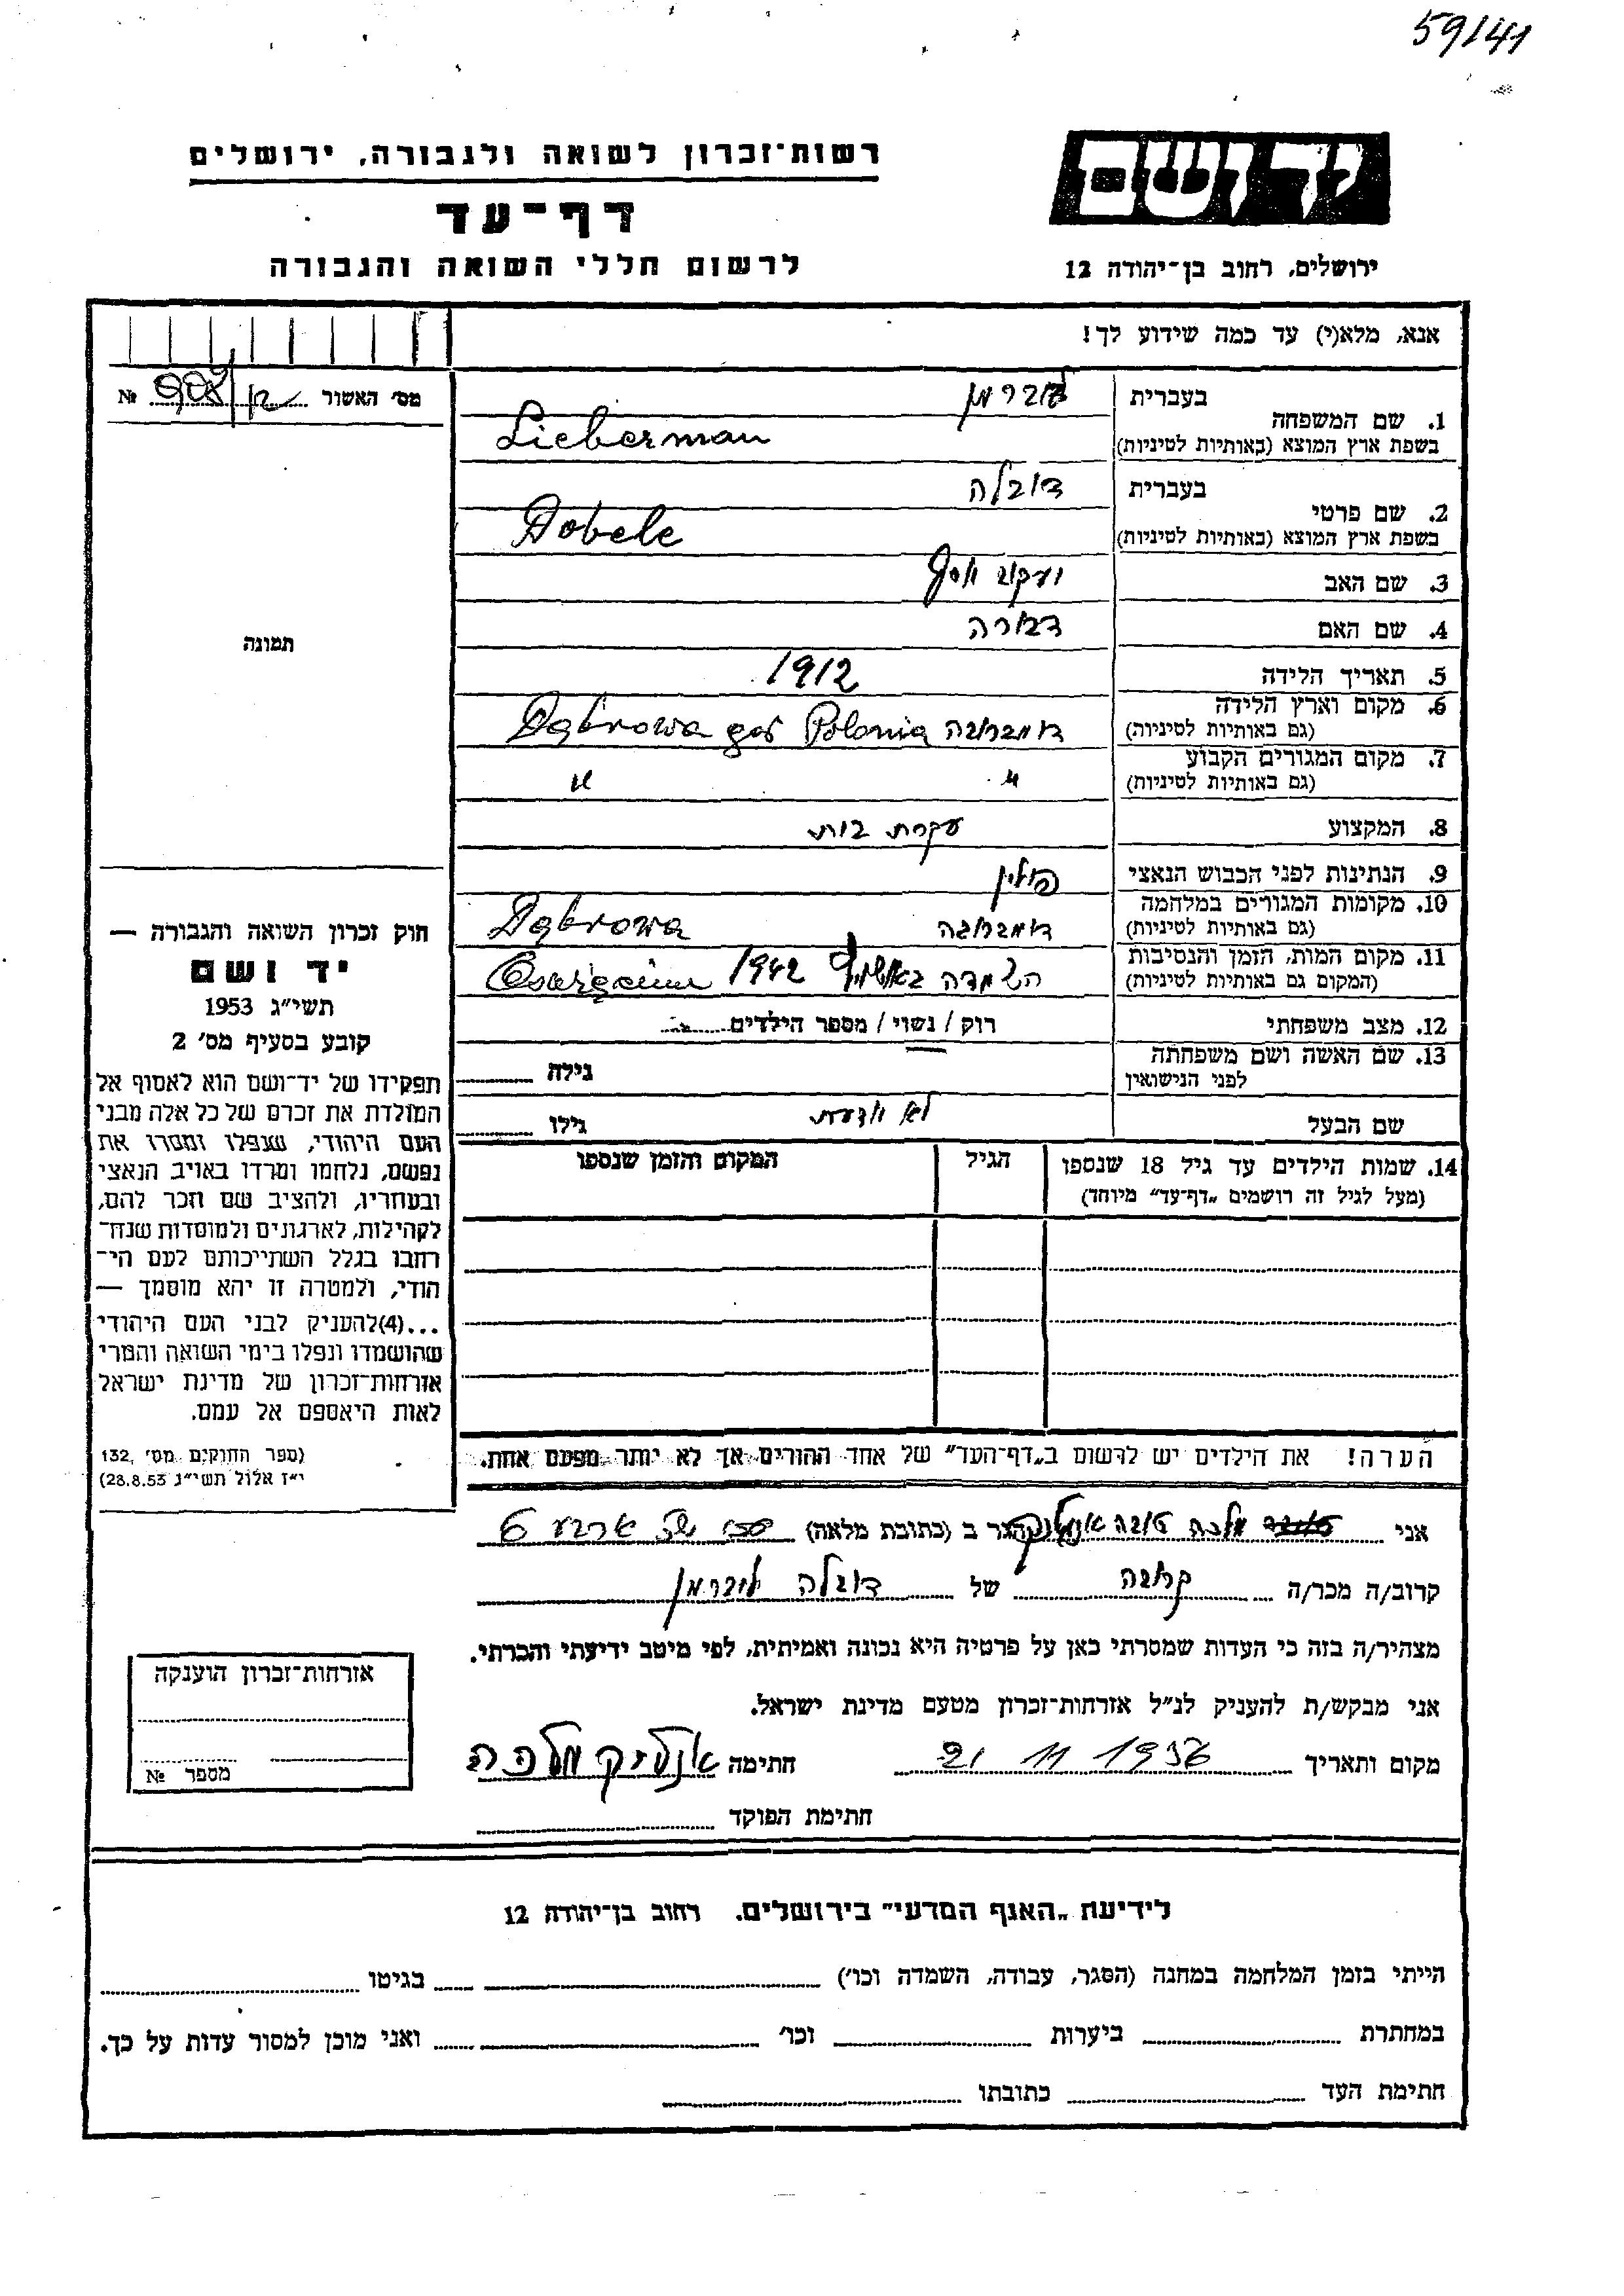 59/41
רשות-זכרון לשואה ולגבורה, ירושלים
יד ושם
דף-עד
לרשום חללי השואה והגבורה
ירושלים, רחוב בן-יהודה 12
אנא, מלא(י) עד כמה שידוע לך!
מס' האשור №
1. שם המשפחה
בעברית ליברמן
בשפת ארץ המוצא (באותיות לטיניות) Lieberman
2. שם פרטי
בעברית דובלה
בשפת ארץ המוצא (באותיות לטיניות) Dobele
3. שם האב יעקב יוסף
4. שם האם דבורה
תמונה
5. תאריך הלידה 1912
6. מקום וארץ הלידה
(גם באותיות לטיניות) דומברובה Dąbrowa gór Polonia
7. מקום המגורים הקבוע
(גם באותיות לטיניות) " "
8. המקצוע עקרת בית
9. הנתינות לפני הכבוש הנאצי פולין
10. מקומות המגורים במלחמה
(גם באותיות לטיניות) דומברובה Dąbrowa
11. מקום המות, הזמן והנסיבות
(המקום גם באותיות לטיניות) השמדה 1942
12. מצב משפחתי רוק / נשוי / מספר הילדים
13. שם האשה ושם משפחתה
לפני הנישואין גילה
שם הבעל לא ידעת גילו
14. שמות הילדים עד גיל 18 שנספו הגיל המקום והזמן שנספו
(מעל לגיל זה רושמים „דף-עד" מיוחד)
הערה! את הילדים יש לרשום ב„דף-העד" של אחד ההורים אך לא יותר מפעם אחת.
חוק זכרון השואה והגבורה —
יד ושם
תשי"ג 1953
קובע בסעיף מס' 2
תפקידו של יד-ושם הוא לאסוף אל
המולדת את זכרם של כל אלה מבני
העם היהודי, שנפלו ומסרו את
נפשם, נלחמו ומרדו באויב הנאצי
ובעוזריו, ולהציב שם וזכר להם,
לקהילות, לארגונים ולמוסדות שנח-
רבו בגלל השתייכותם לעם הי-
הודי, ולמטרה זו יהא מוסמך —
...(4)להעניק לבני העם היהודי
שהושמדו ונפלו בימי השואה והמרי
אזרחות-זכרון של מדינת ישראל
לאות היאספם אל עמם.
(ספר החוקים מס' 132,
י"ז אלול תשי"ג 28.8.53)
אני מלכה טובה הגר ב (כתובת מלאה) ארבע 6
קרוב/ה מכר/ה קרובה של דובלה ליברמן
מצהיר/ה בזה כי העדות שמסרתי כאן על פרטיה היא נכונה ואמיתית, לפי מיטב ידיעתי והכרתי.
אני מבקש/ת להעניק לנ"ל אזרחות-זכרון מטעם מדינת ישראל.
מקום ותאריך 21 11 1956 חתימה מלכה
חתימת הפוקד
אזרחות-זכרון הוענקה
מספר №
לידיעת „האגף המדעי" בירושלים. רחוב בן-יהודה 12
הייתי בזמן המלחמה במחנה (הסגר, עבודה, השמדה וכו') בגיטו
במחתרת ביערות וכו' ואני מוכן למסור עדות על כך.
חתימת העד כתובתו